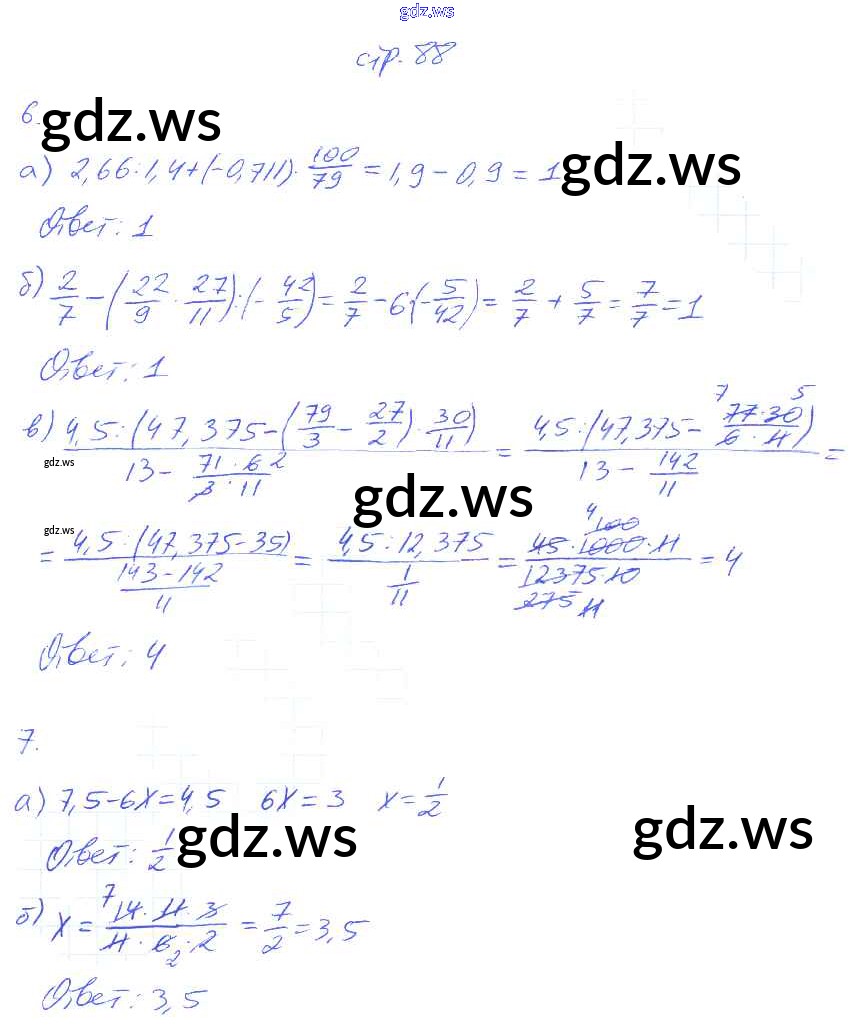 gdz.ws
стр. 88
6. gdz.ws
а) 2,66:1,4+(-0,711)·100/79=1,9-0,9=1 gdz.ws
Ответ: 1
б) 2/7-(22/9·27/11):(-42/5)=2/7-6(-5/42)=2/7+5/7=7/7=1
Ответ: 1
в) 4,5:(47,375-(79/3-27/2)·30/11)/(13-(71·6 2)/(3·11))=4,5:(47,375-(7 77·30 5)/(6·11))/(13-142/11)=
gdz.ws gdz.ws
gdz.ws
=4,5:(47,375-35)/((143-142)/11)=4,5:12,375/(1/11)=(45·1000·11)/(12375·10)=4
4 100
275 11
Ответ: 4
7.
а) 7,5-6x=4,5 6x=3 x=1/2
Ответ: 1/2 gdz.ws gdz.ws
б) x=(7 14·11·3)/(11·6 2·2)=7/2=3,5
Ответ: 3,5